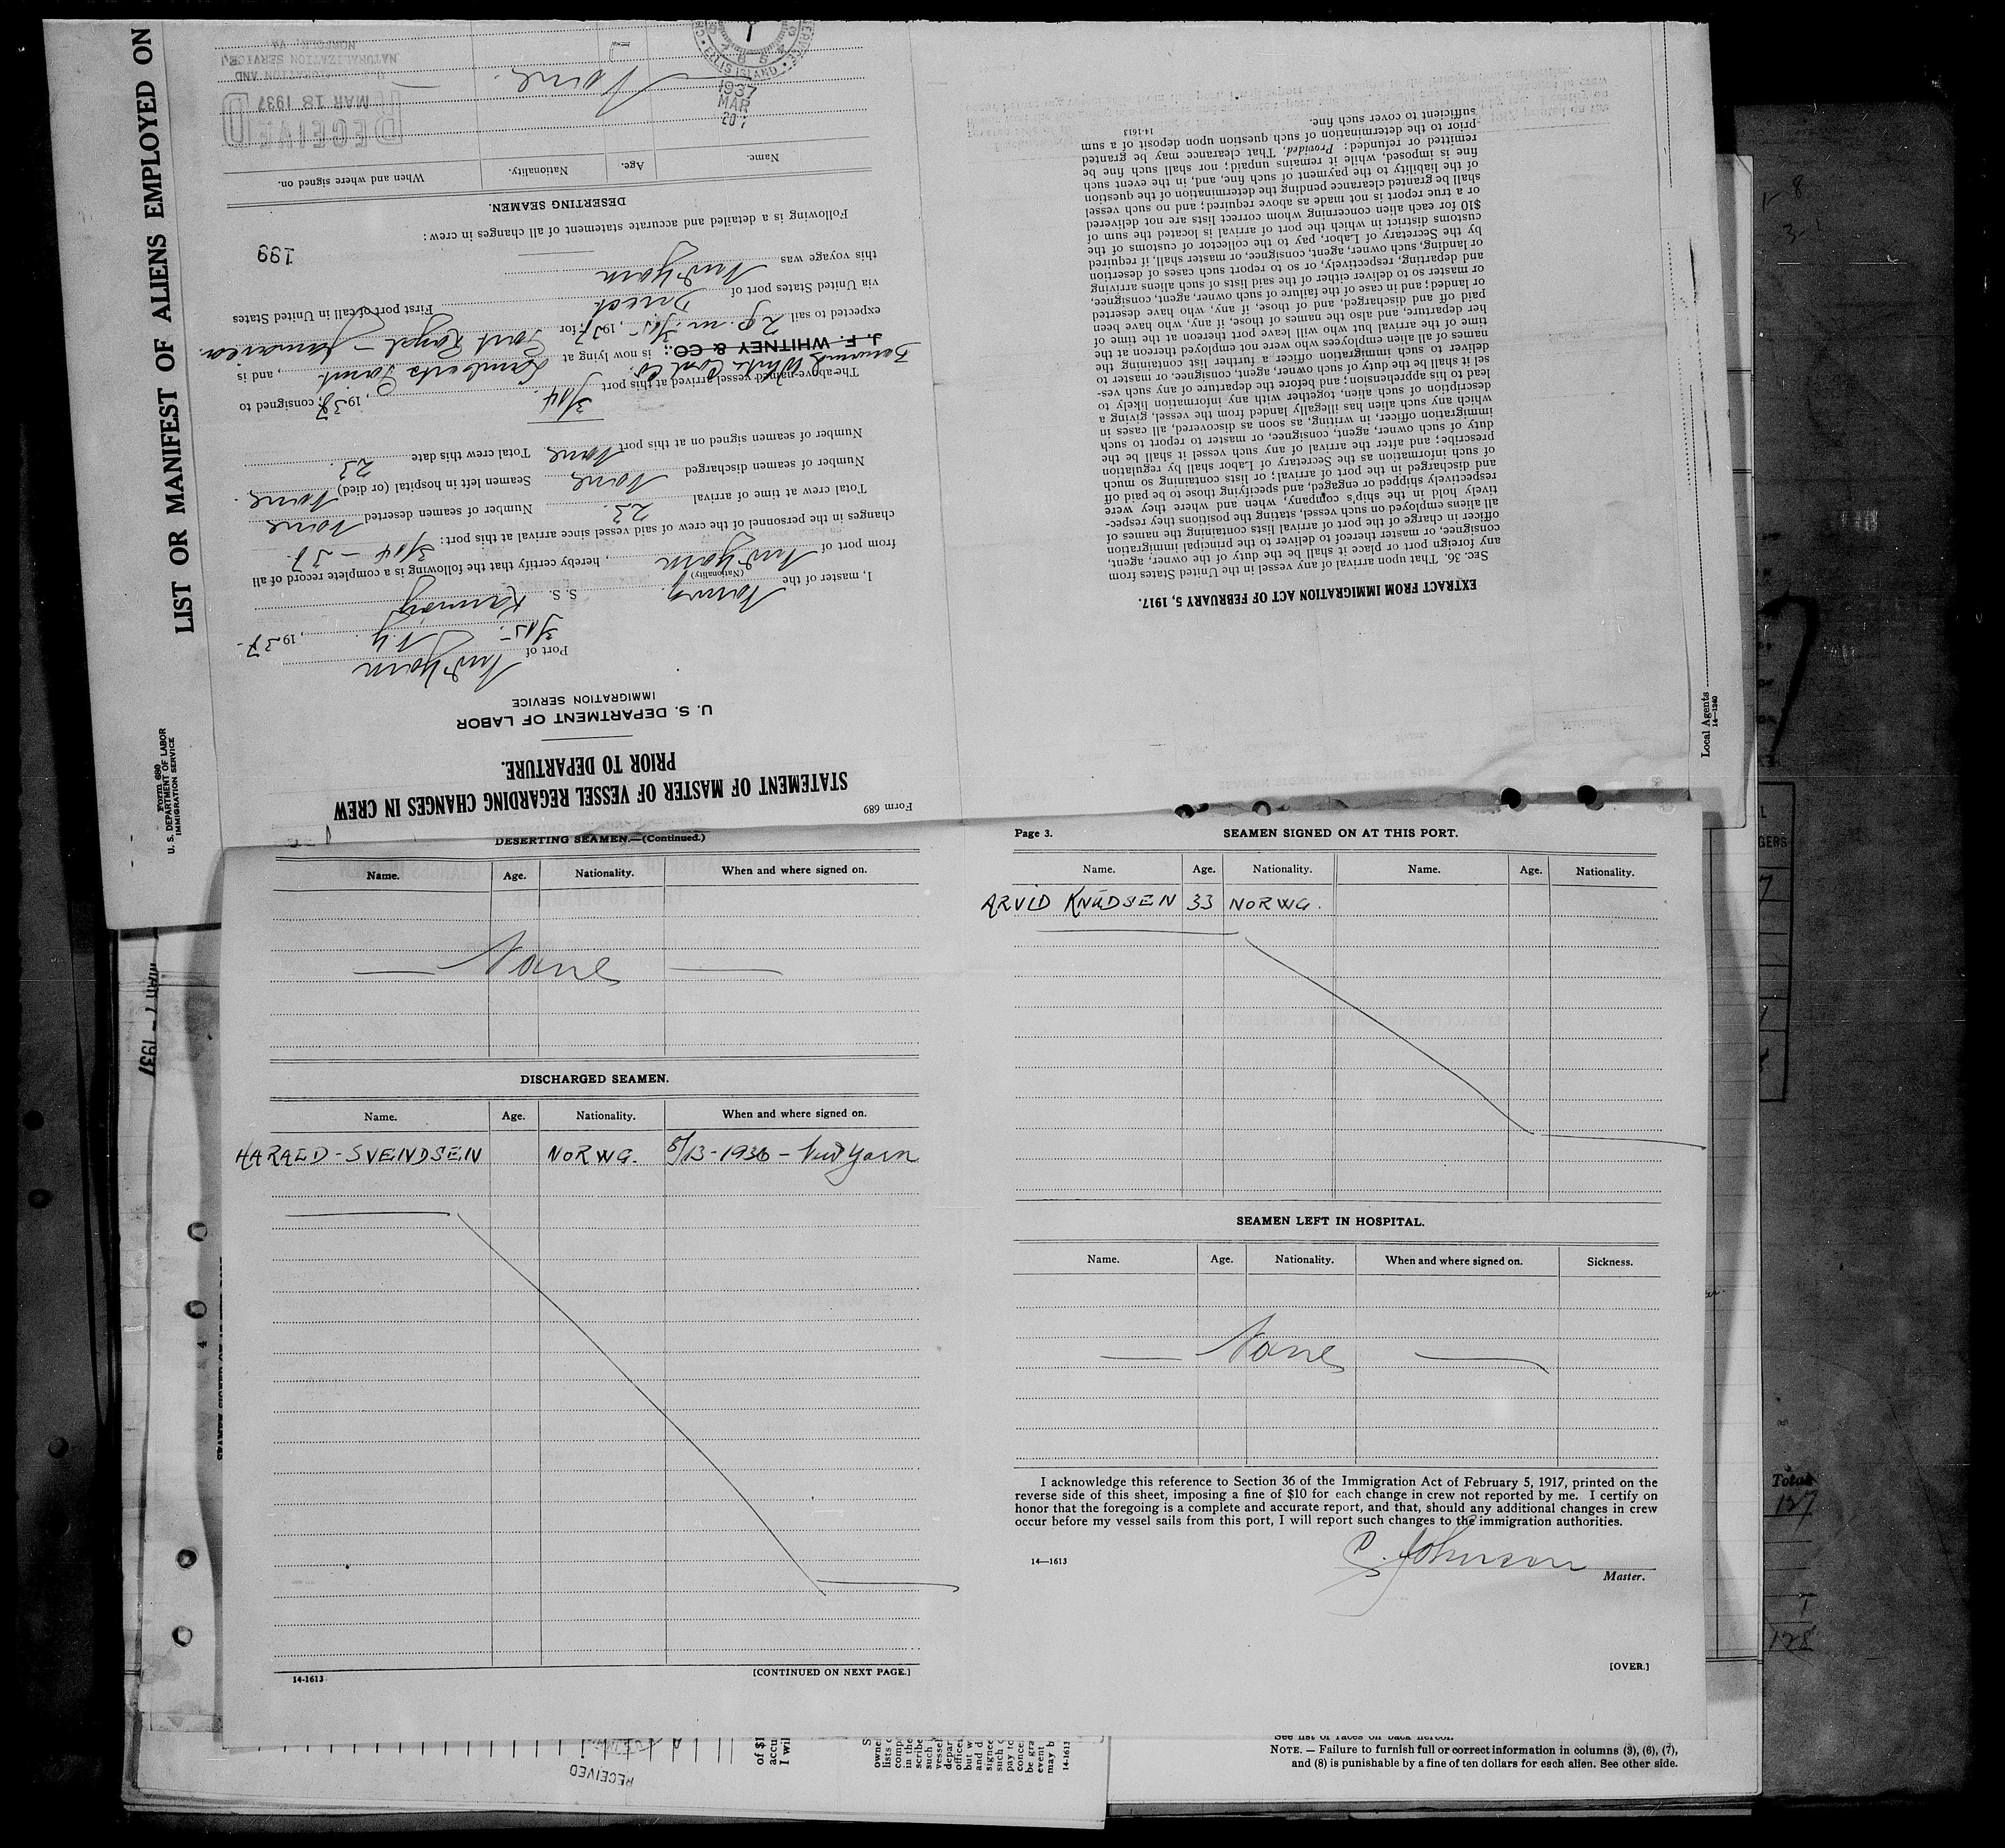 LIST OR MANIFEST OF ALIENS EMPLOYED ON
Form 680
U. S. DEPARTMENT OF LABOR
IMMIGRATION SERVICE
Form 689
STATEMENT OF MASTER OF VESSEL REGARDING CHANGES IN CREW
PRIOR TO DEPARTURE.
U. S. DEPARTMENT OF LABOR
IMMIGRATION SERVICE
Port of New York
3/15. N.Y. , 1937.
I, master of the Norwg. S. S.
(Nationality)
from port of New York , hereby certify that the following is a complete record of all
changes in the personnel of the crew of said vessel since arrival at this port: 3/14 - 37.
Total crew at time of arrival 23. Number of seamen deserted None
Number of seamen discharged None Seamen left in hospital (or died) None.
Number of seamen signed on at this port None. Total crew this date 23.
The above-named vessel arrived at this port 3/14 , 1937, consigned to
J. F. WHITNEY & CO.: is now lying at , and is
expected to sail 2 p.m. 3/15 , 1937 for Port Royal - Jamaica.
via United States port of Direct First port of call in United States
this voyage was New York
199
Following is a detailed and accurate statement of all changes in crew:
DESERTING SEAMEN.
Name. Age. Nationality. When and where signed on.
None.
RECEIVED
MAR 18 1937
IMMIGRATION AND
NATURALIZATION SERVICE
NORFOLK, VA.
ELLIS ISLAND
1937
MAR
20
EXTRACT FROM IMMIGRATION ACT OF FEBRUARY 5, 1917.
SEC. 36. That upon arrival of any vessel in the United States from
any foreign port or place it shall be the duty of the owner, agent,
consignee, or master thereof to deliver to the principal immigration
officer in charge of the port of arrival lists containing the names of
all aliens employed on such vessel, stating the positions they respec-
tively hold in the ship's company, when and where they were
respectively shipped or engaged, and specifying those to be paid off
and discharged in the port of arrival; or lists containing so much
of such information as the Secretary of Labor shall by regulation
prescribe; and after the arrival of any such vessel it shall be the
duty of such owner, agent, consignee, or master to report to such
immigration officer, in writing, as soon as discovered, all cases in
which any such alien has illegally landed from the vessel, giving a
description of such alien, together with any information likely to
lead to his apprehension; and before the departure of any such ves-
sel it shall be the duty of such owner, agent, consignee, or master to
deliver to such immigration officer a further list containing the
names of all alien employees who were not employed thereon at the
time of the arrival but who will leave port thereon at the time of
her departure, and also the names of those, if any, who have been
paid off and discharged, and of those, if any, who have deserted
or landed; and in case of the failure of such owner, agent, consignee,
or master so to deliver either of the said lists of such aliens arriving
and departing, respectively, or so to report such cases of desertion
or landing, such owner, agent, consignee, or master shall, if required
by the Secretary of Labor, pay to the collector of customs of the
customs district in which the port of arrival is located the sum of
$10 for each alien concerning whom correct lists are not delivered
or a true report is not made as above required; and no such vessel
shall be granted clearance pending the determination of the question
of the liability to the payment of such fine, and, in the event such
fine is imposed, while it remains unpaid; nor shall such fine be
remitted or refunded: Provided, That clearance may be granted
prior to the determination of such question upon deposit of a sum
sufficient to cover such fine.
14-1613
Local Agents
14-1240
DESERTING SEAMEN.—(Continued.)
Name. Age. Nationality. When and where signed on.
None
DISCHARGED SEAMEN.
Name. Age. Nationality. When and where signed on.
HARALD - SVENDSEN NORWG. 8/13-1936 - New York
14-1613
[CONTINUED ON NEXT PAGE.]
Page 3.
SEAMEN SIGNED ON AT THIS PORT.
Name. Age. Nationality. Name. Age. Nationality.
ARVID KNUDSEN 33 NORWG.
SEAMEN LEFT IN HOSPITAL.
Name. Age. Nationality. When and where signed on. Sickness.
None
I acknowledge this reference to Section 36 of the Immigration Act of February 5, 1917, printed on the
reverse side of this sheet, imposing a fine of $10 for each change in crew not reported by me. I certify on
honor that the foregoing is a complete and accurate report, and that, should any additional changes in crew
occur before my vessel sails from this port, I will report such changes to the immigration authorities.
14—1613
Johnson
Master.
[OVER.]
See list of races on back hereof.
NOTE. — Failure to furnish full or correct information in columns (3), (6), (7),
and (8) is punishable by a fine of ten dollars for each alien. See other side.
RECEIVED
Total
127
1
128